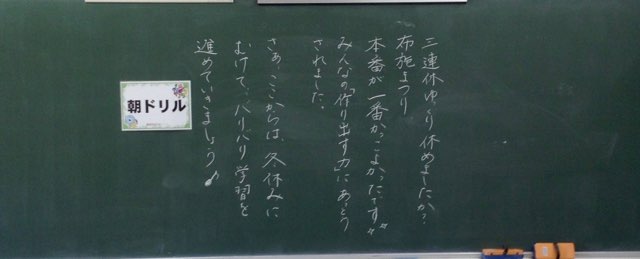 三連休ゆっくり休めましたか？
布施まつり
本番が一番かっこよかったです〃
みんなの「作り出す力」にあっとう
されました。
さぁ、ここからは、冬休みに
むけて、バリバリ学習を
進めていきましょう♪
朝ドリル